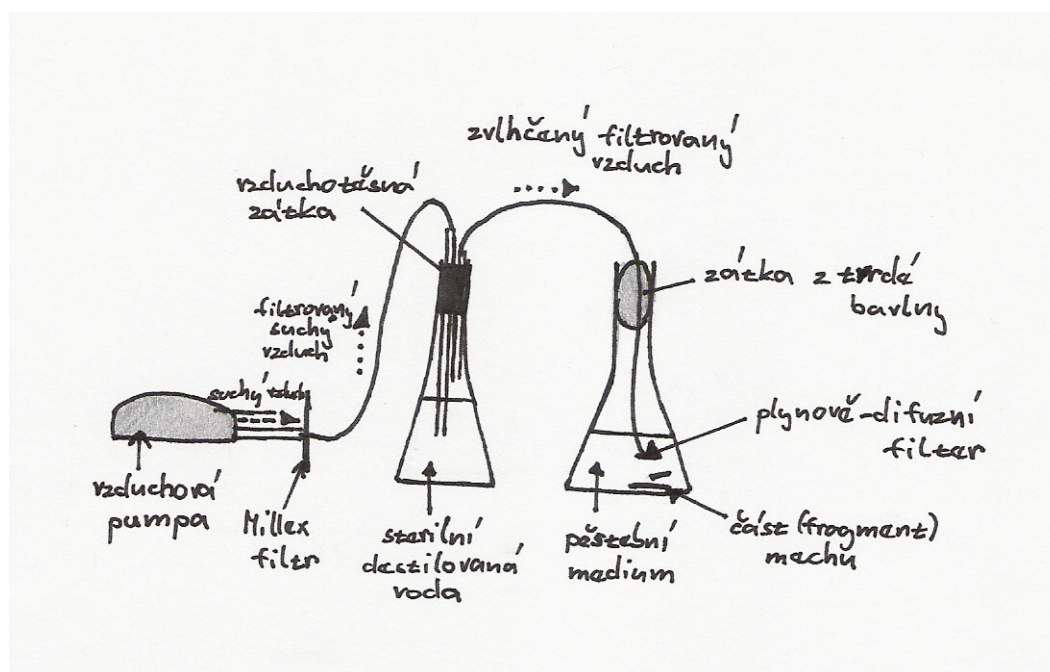 zvlhčený filtrovaný
vzduch
vzduchotěsná
zátka
zátka z tvrdé
bavlny
filtrovaný
suchý
vzduch
suchý vzduch
plynově-difuzní
filter
vzduchová
pumpa
Millex
filtr
sterilní
destilovaná
voda
pěstební
medium
část (fragment)
mechu